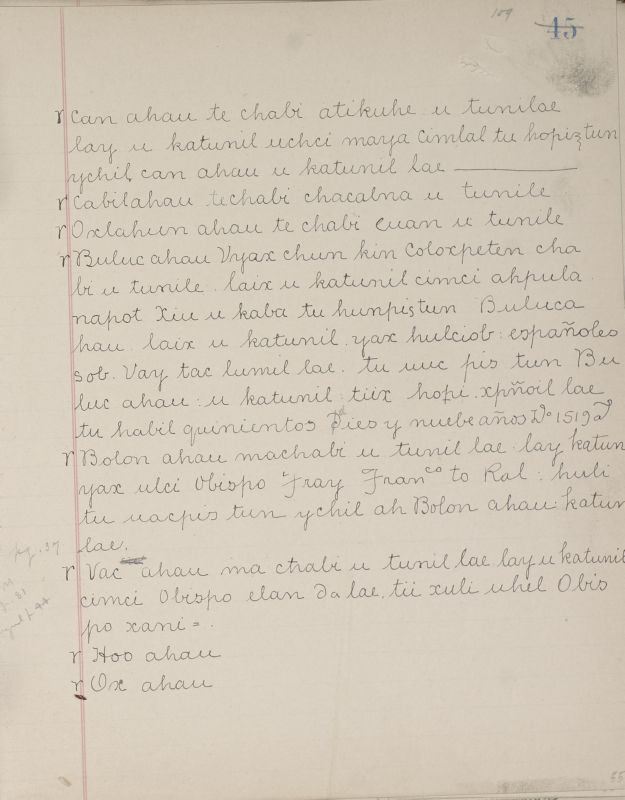 109
45
r Can ahau te chabi atikuhe u tunilae
lay u katunil uchci maya cimlal tu hopiz tun
ychil can ahau u katunil lae
r Cabilahau techabi chacalna u tunile
r Oxlahun ahau te chabi euan u tunile
r Buluc ahau Vyax chun kin Coloxpeten cha
bi u tunile . laix u katunil cimci ahpula
napot Xiu u kaba tu hunpistun Buluca
hau . laix u katunil . yax hulciob : españoles
sob . Vay tac lumil lae . tu uuc pis tun Bu
luc ahau : u katunil : tiix hopi . xpñoil lae
tu habil quinientos Dies y nuebe años Do 1519 as
r Bolon ahau machabi u tunil lae . lay katun
yax ulci Obispo Fray Franco to Ral : huli
tu uacpis tun ychil ah Bolon ahau : katun
lae .
r Vac ahau ma chabi u tunil lae lay u katunil
cimci Obispo elan da lae . tii xuli uhel Obis
po xani = .
r Hoo ahau
r Ox ahau
pg. 37
55